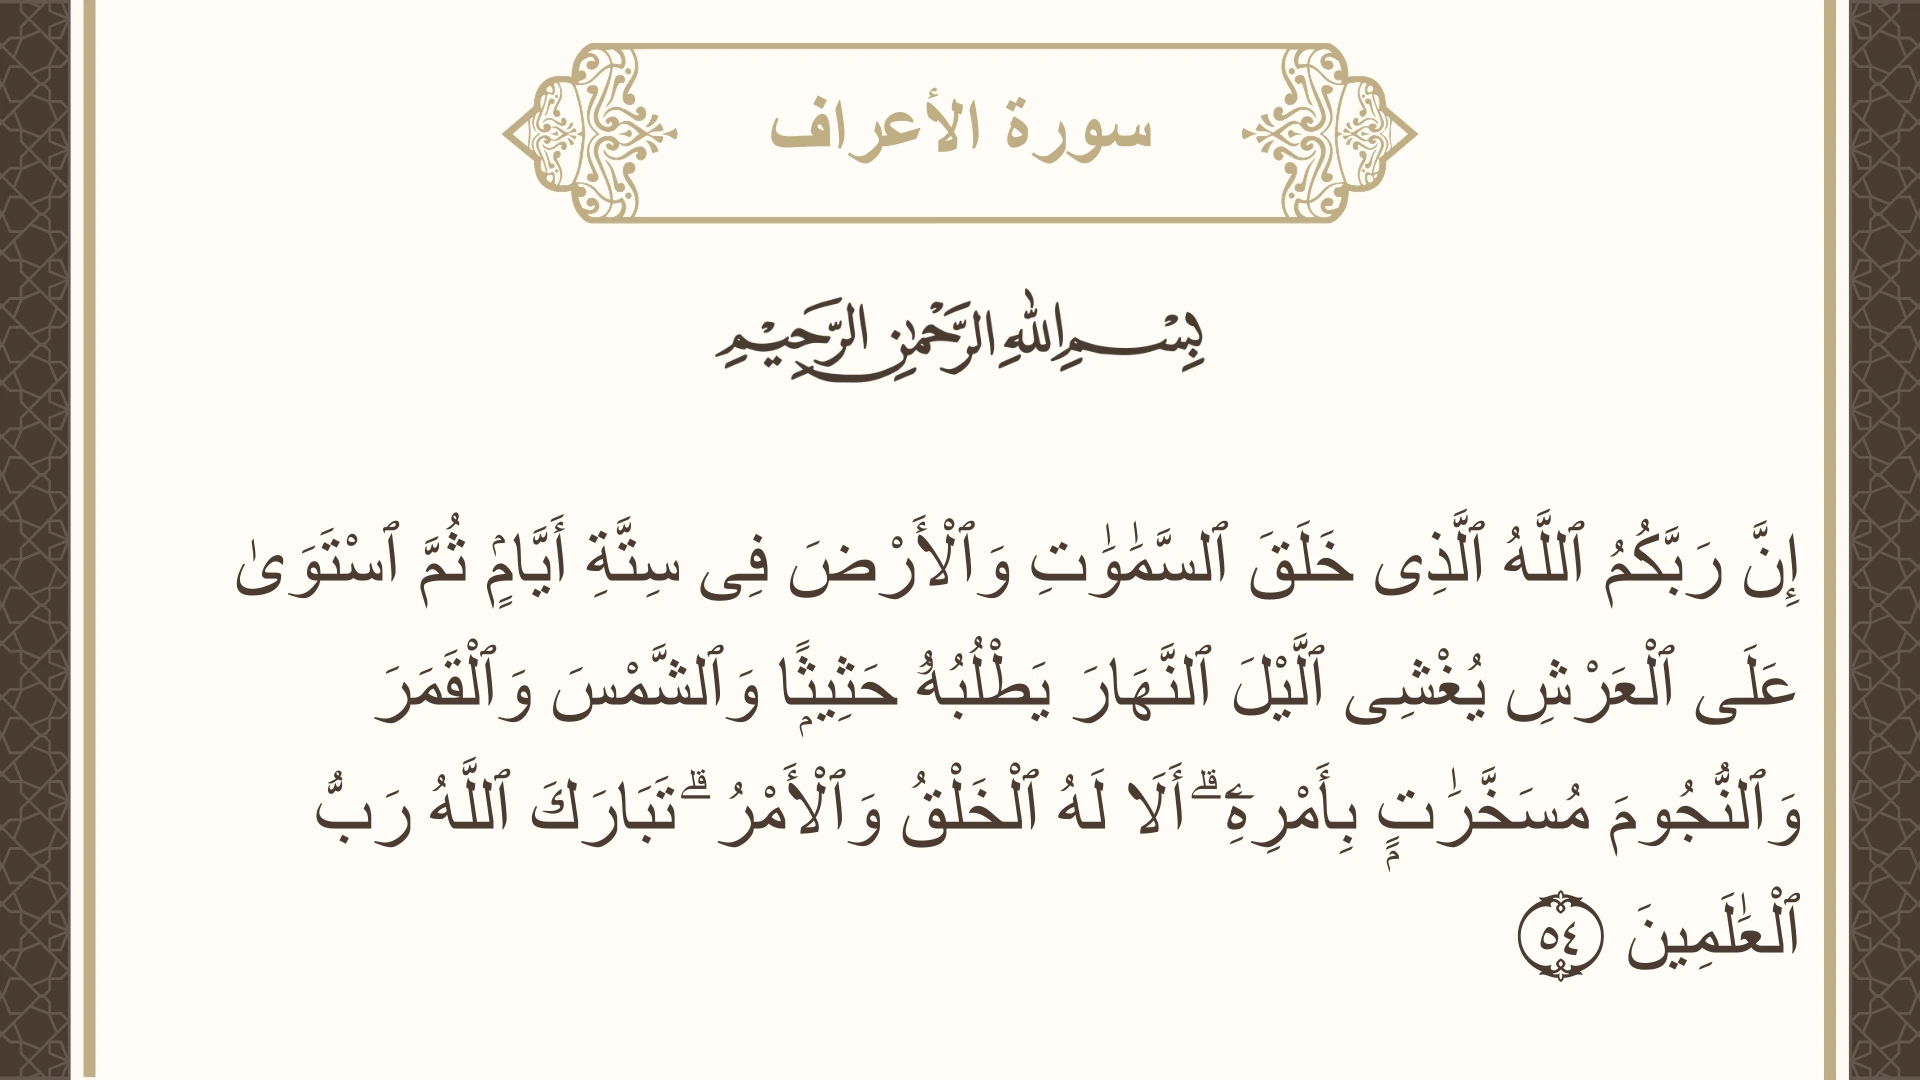 سورة الأعراف
بِسْمِ اللهِ الرَّحْمٰنِ الرَّحِيْمِ
إِنَّ رَبَّكُمُ ٱللَّهُ ٱلَّذِى خَلَقَ ٱلسَّمَٰوَٰتِ وَٱلْأَرْضَ فِى سِتَّةِ أَيَّامٍۢ ثُمَّ ٱسْتَوَىٰ
عَلَى ٱلْعَرْشِ يُغْشِى ٱلَّيْلَ ٱلنَّهَارَ يَطْلُبُهُۥ حَثِيثًۭا وَٱلشَّمْسَ وَٱلْقَمَرَ
وَٱلنُّجُومَ مُسَخَّرَٰتٍۭ بِأَمْرِهِۦٓ ۗ أَلَا لَهُ ٱلْخَلْقُ وَٱلْأَمْرُ ۗ تَبَارَكَ ٱللَّهُ رَبُّ
ٱلْعَٰلَمِينَ ٥٤